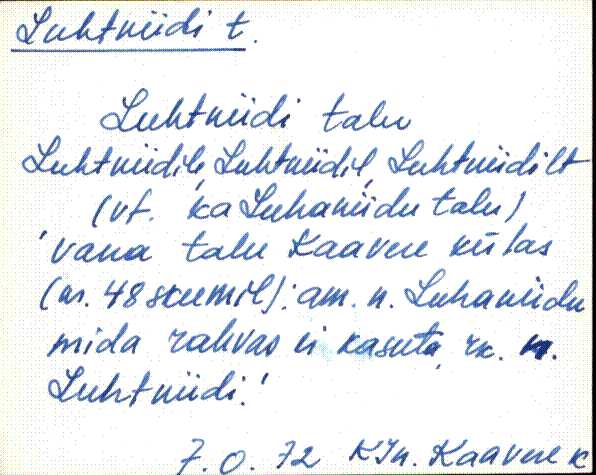 Luhtniidi t.
Luhtniidi talu
Luhtniidile, Luhtniidil, Luhtniidilt
(vt. ka Luhaniidu talu)
'vana talu Kaavere külas
(nr. 48 skeemil); am. n. Luhaniidu
mida rahvas ei kasuta, rk. n.
Luhtniidi.'
7.0.72 KJn. Kaavere k